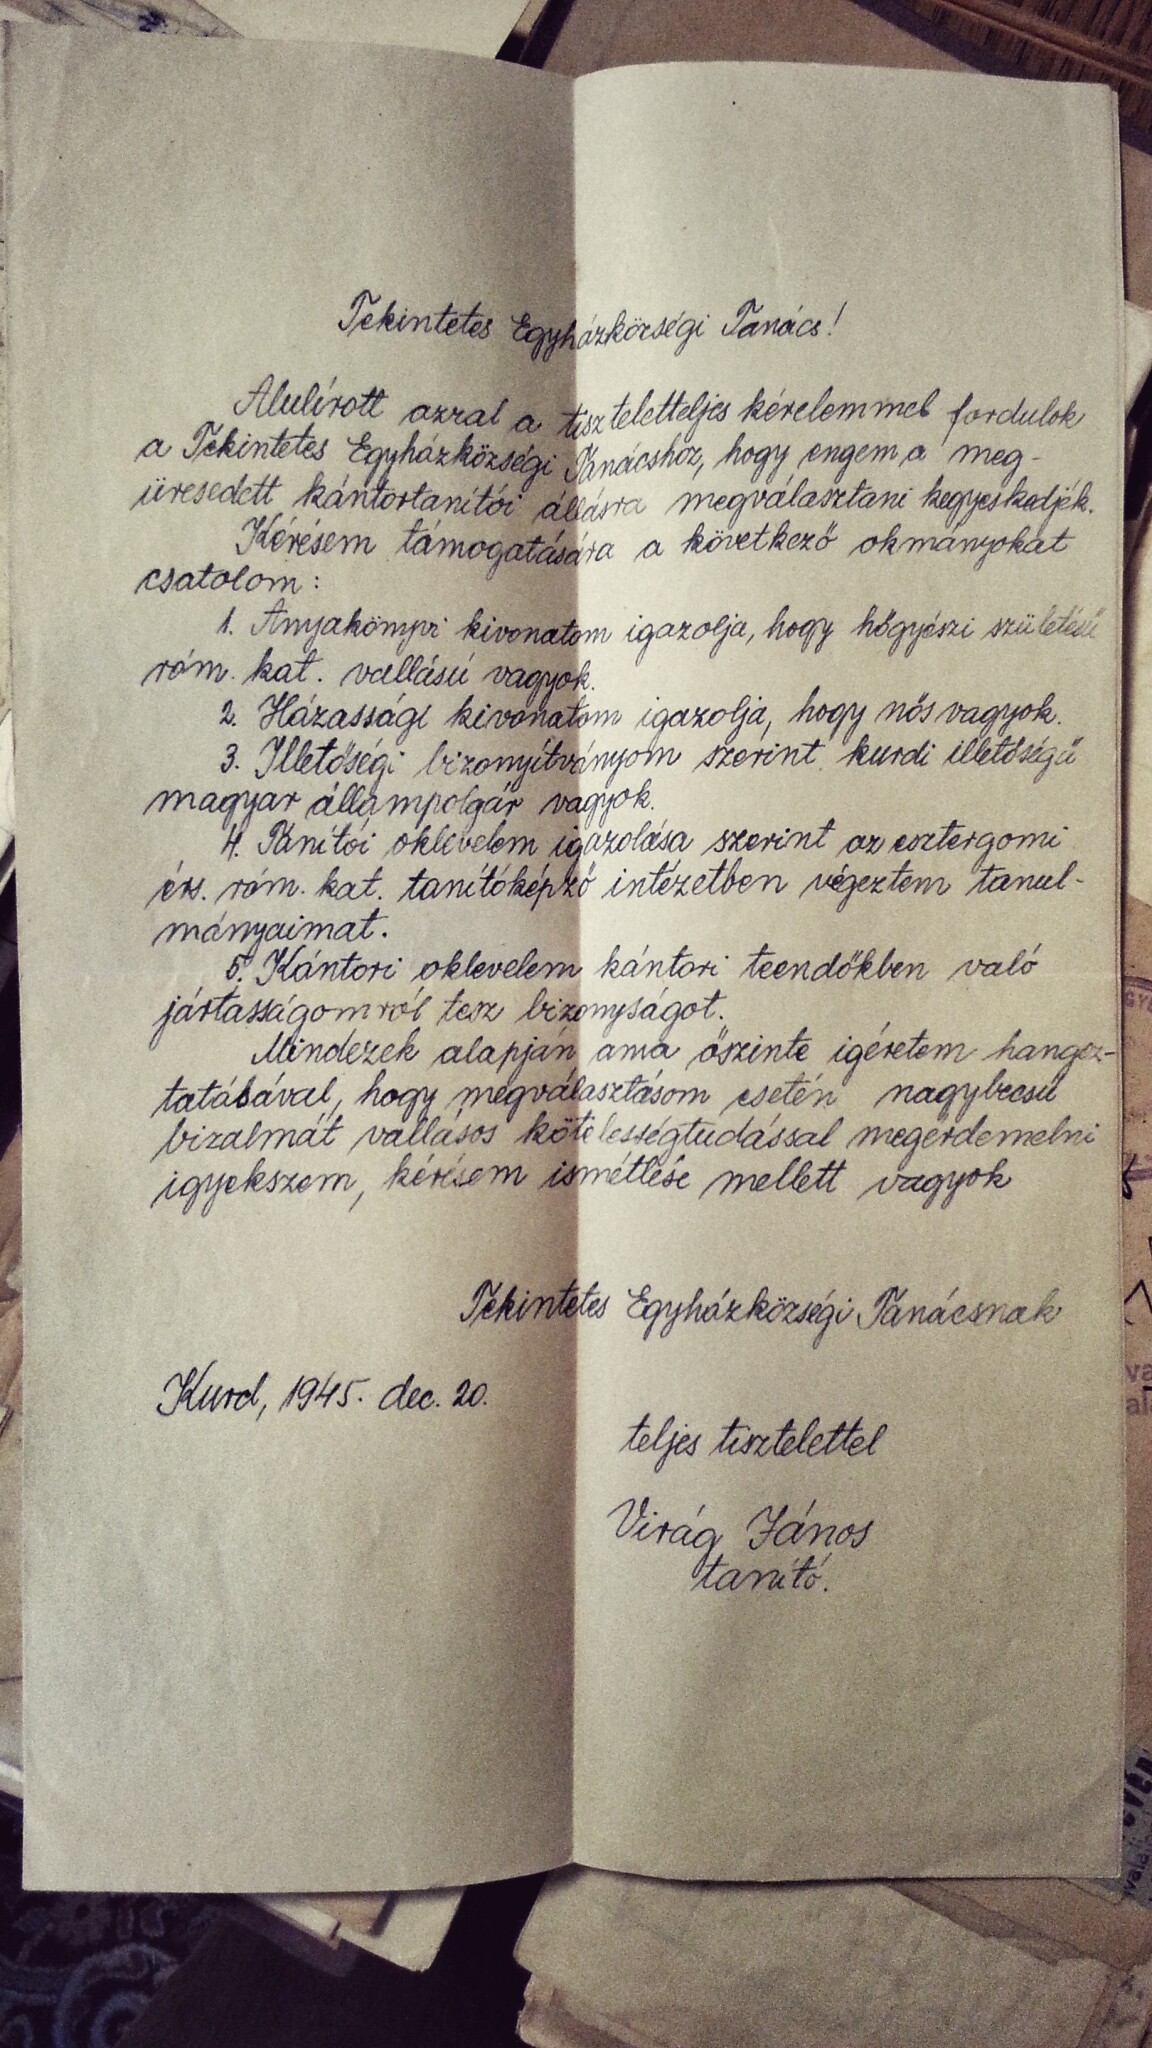 Tekintetes Egyházközségi Tanács!
Alulírott azzal a tiszteletteljes kérelemmel fordulok
a Tekintetes Egyházközségi Tanácshoz, hogy engem a meg-
üresedett kántortanítói állásra megválasztani kegyeskedjék.
Kérésem támogatására a következő okmányokat
csatolom:
1. Anyakönyvi kivonatom igazolja, hogy hőgyészi születésű
róm. kat. vallású vagyok.
2. Házassági kivonatom igazolja, hogy nős vagyok.
3. Illetőségi bizonyítványom szerint kurdi illetőségű
magyar állampolgár vagyok.
4. Tanítói oklevelem igazolása szerint az esztergomi
érs. róm. kat. tanítóképző intézetben végeztem tanul-
mányaimat.
5. Kántori oklevelem kántori teendőkben való
jártasságomról tesz bizonyságot.
Mindezek alapján ama őszinte igéretem hangoz-
tatásával, hogy megválasztásom esetén nagybecsű
bizalmát vallásos kötelességtudással megérdemelni
igyekszem, kérésem ismétlése mellett vagyok
Tekintetes Egyházközségi Tanácsnak
Kurd, 1945. dec. 20.
teljes tisztelettel
Virág János
tanító.